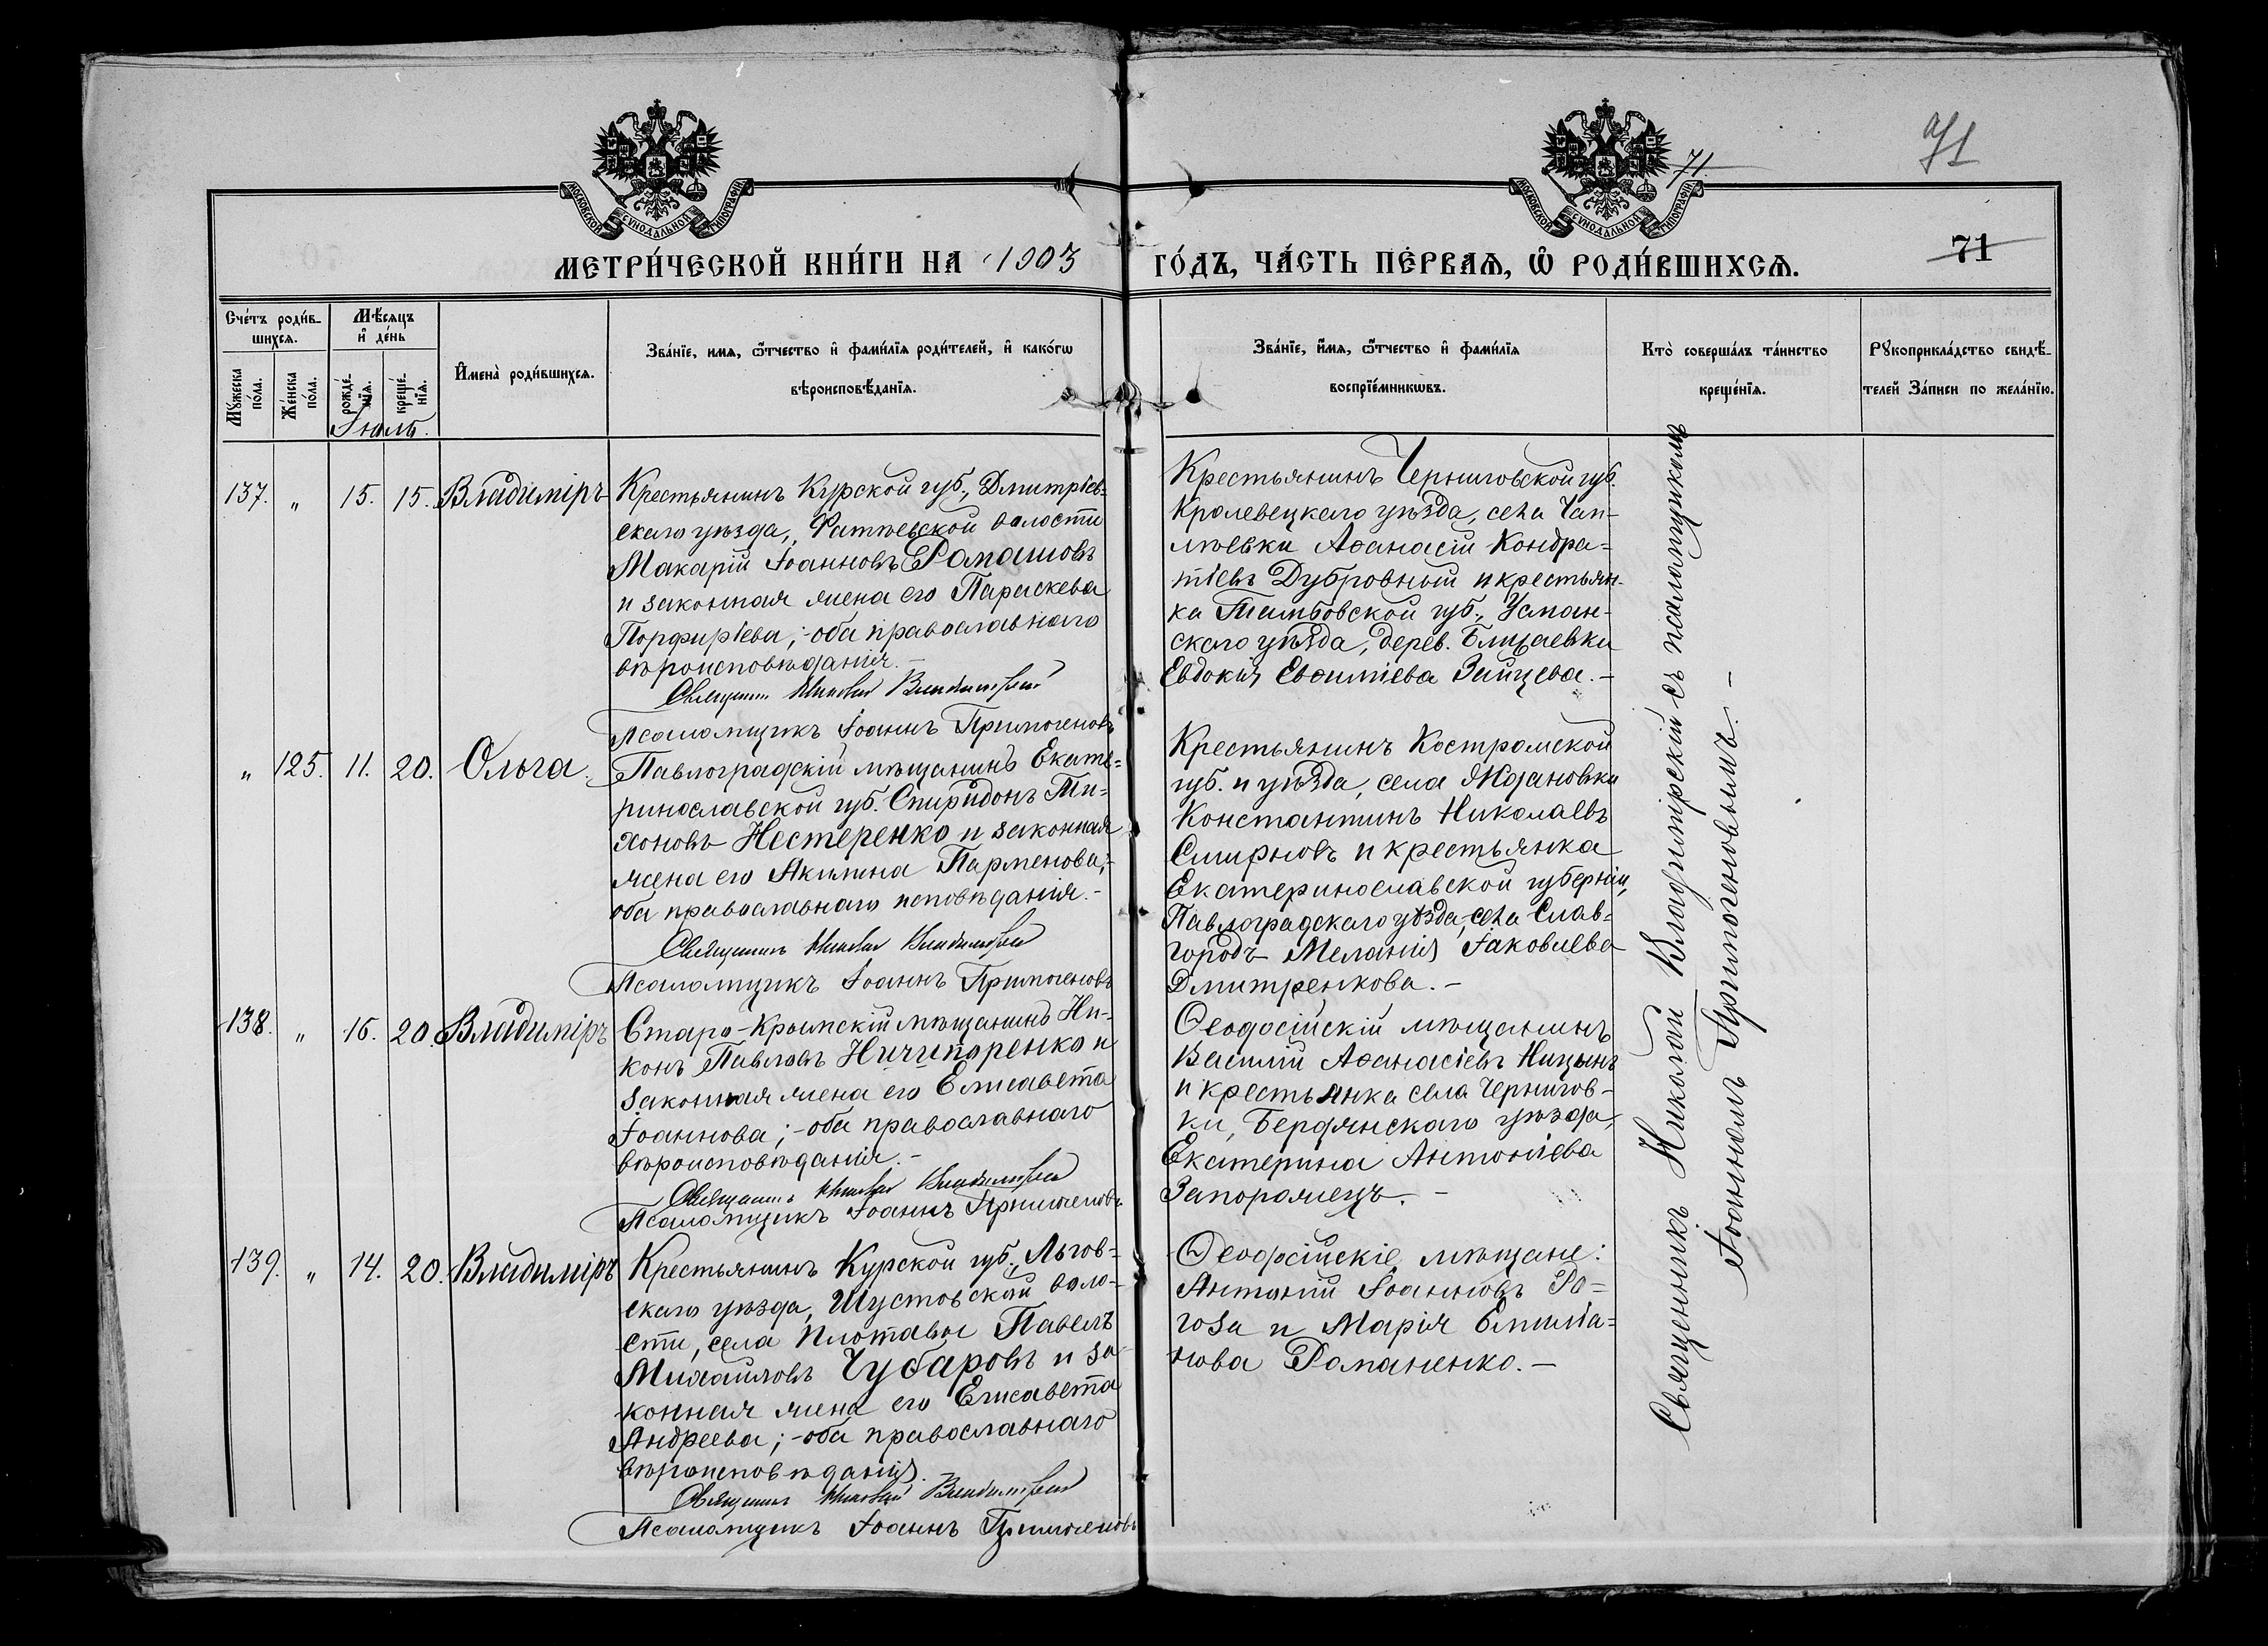 71
71
МОСКОВСКОЙ СѴНОДАЛЬНОЙ ТИПОГРАФІИ
МОСКОВСКОЙ СѴНОДАЛЬНОЙ ТИПОГРАФІИ
71
МЕТРИ́ЧЕСКОЙ КНИ́ГИ НА 1903
ГО́ДЪ, ЧА́СТЬ ПЕ́РВАѦ, Ѡ҆ РОДИ́ВШИХСѦ.
Сче́тъ роди́в-
шихсѧ.
Мѣ́сѧцъ
и҆ де́нь
Мꙋ́жеска
по́ла.
Же́нска
по́ла.
рожде́-
нїѧ.
креще́-
нїѧ.
Іюль.
И҆мена̀ роди́вшихсѧ.
Зва́нїе, имѧ, ѻ҆́тчество и҆ фами́лїѧ роди́телей, и҆ како́гѡ
вѣроисповѣ́данїѧ.
Зва́нїе, и҆́мѧ, ѻ҆́тчество и҆ фами́лїѧ
воспрїе́мникѡвъ.
Кто̀ соверша́лъ та́инство
креще́нїѧ.
Рꙋкоприкла́дство свидѣ́-
телей За́писи по жела́нїю.
137. " 15. 15. Владиміръ
Крестьянинъ Курской губ., Дмитріев-
скаго уѣзда, Фатѣевской волости
Макарій Іоанновъ Ромашовъ
и законная жена его Параскева
Порфиріева; - оба православнаго
вѣроисповѣданія. -
Священн. Николай Владимірскій
Псаломщикъ Іоаннъ Примогеновъ
Крестьянинъ Черниговской губ.
Кролевецкаго уѣзда, села Чап-
лѣевки Аѳанасій Кондра-
тіевъ Дубровный и крестьян-
ка Тамбовской губ., Усман-
скаго уѣзда, дерев.
Евдокія Евѳиміева Зайцева. -
" 125. 11. 20. Ольга.
Павлоградскій мѣщанинъ Екате-
ринославской губ. Спиридонъ Ти-
хоновъ Нестеренко и законная
жена его Акилина Парменова; -
оба православнаго исповѣданія. -
Священникъ Николай Владимірскій
Псаломщикъ Іоаннъ Примогеновъ
Крестьянинъ Костромской
губ. и уѣзда, села Ждановки
Константинъ Николаевъ
Смирновъ и крестьянка
Екатеринославской губерніи,
Павлоградскаго уѣзда, села Слав-
городъ Меланія Іаковлева
Дмитренкова. -
138. " 16. 20. Владиміръ
Старо-Крымскій мѣщанинъ Ни-
конъ Павловъ Ничипоренко и
законная жена его Елисавета
Іоаннова; - оба православнаго
вѣроисповѣданія. -
Священникъ Николай Владимірскій
Псаломщикъ Іоаннъ Примогеновъ
Ѳеодосійскій мѣщанинъ
Василій Аѳанасіевъ Ницынъ
и крестьянка села Чернигов-
ки, Бердянскаго уѣзда,
Екатерина Антоніева
Запорожецъ. -
139. " 14. 20. Владиміръ
Крестьянинъ Курской губ., Льгов-
скаго уѣзда, Шустовской воло-
сти, села Плотавы Павелъ
Михайловъ Чубаровъ и за-
конная жена его Елисавета
Андреева; - оба православнаго
вѣроисповѣданія.
Священникъ Николай Владимірскій
Псаломщикъ Іоаннъ Примогеновъ
Ѳеодосійскіе мѣщане:
Антоній Іоанновъ Ро-
гоза и Марія Емилiа-
нова Романенко. -
Священникъ Николай Владимірскій съ псаломщикомъ
Іоанномъ Примогеновымъ. -